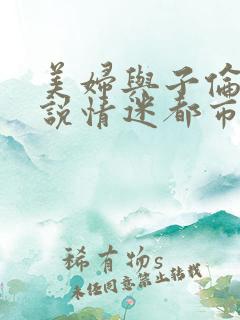 美婦與子倫
說情迷都市
稀有物s
未任同意禁止转载